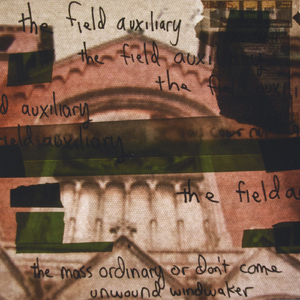 the field auxiliary
the field auxiliary
the
d auxiliary
field auxiliary
the field a
the mass ordinary or don't come
unwound windwaker